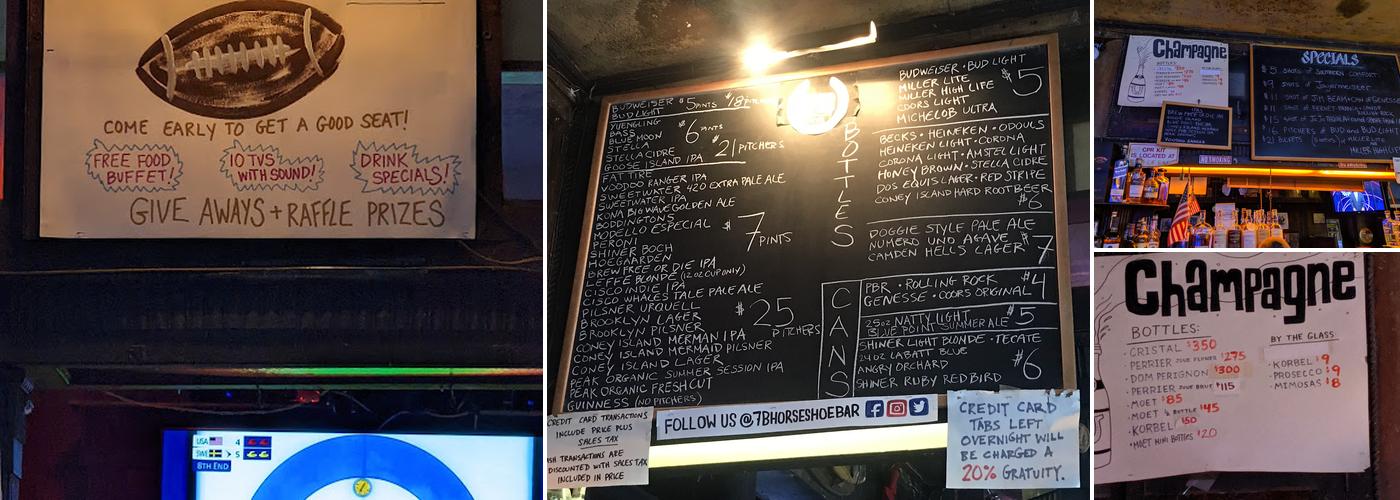 COME EARLY TO GET A GOOD SEAT!
FREE FOOD BUFFET!
10 TVS WITH SOUND!
DRINK SPECIALS!
GIVE AWAYS + RAFFLE PRIZES
USA 4
SWE 5
8TH END
BUDWEISER $5 PINTS $18
BUD LIGHT
YUENGLING
BASS
BLUE MOON
STELLA
$6 PINTS
STELLA CIDRE
GOOSE ISLAND IPA $21 PITCHERS
FAT TIRE
VOODOO RANGER IPA
SWEETWATER 420 EXTRA PALE ALE
SWEETWATER IPA
KONA BIG WAVE GOLDEN ALE
BODDINGTONS
MODELLO ESPECIAL
PERONI
$7 PINTS
SHINER BOCH
HOEGAARDEN
BREW FREE OR DIE IPA
LEFFE BLONDE (12 OZ CUP ONLY)
CISCO INDIE IPA
CISCO WHALES TALE PALE ALE
PILSNER URQUELL
BROOKLYN LAGER
$25 PITCHERS
BROOKLYN PILSNER
CONEY ISLAND MERMAN IPA
CONEY ISLAND MERMAID PILSNER
CONEY ISLAND LAGER
PEAK ORGANIC SUMMER SESSION IPA
PEAK ORGANIC FRESH CUT
GUINNESS (NO PITCHERS)
BOTTLES
BUDWEISER · BUD LIGHT
MILLER LITE
MILLER HIGH LIFE
COORS LIGHT
MICHELOB ULTRA
$5
BECKS · HEINEKEN · ODOULS
HEINEKEN LIGHT · CORONA
CORONA LIGHT · AMSTEL LIGHT
HONEY BROWN · STELLA CIDRE
DOS EQUIS LAGER · RED STRIPE
CONEY ISLAND HARD ROOTBEER
$6
DOGGIE STYLE PALE ALE
NUMERO UNO AGAVE
CAMDEN HELLS LAGER
$7
CANS
PBR · ROLLING ROCK
GENESSE · COORS ORIGINAL
$4
25oz NATTY LIGHT
BLUE POINT SUMMER ALE
$5
SHINER LIGHT BLONDE · TECATE
24OZ LABATT BLUE
ANGRY ORCHARD
SHINER RUBY REDBIRD
$6
CREDIT CARD TRANSACTIONS
INCLUDE PRICE PLUS
SALES TAX
TRANSACTIONS ARE
DISCOUNTED WITH SALES TAX
INCLUDED IN PRICE
FOLLOW US @7BHORSESHOEBAR
CREDIT CARD
TABS LEFT
OVERNIGHT WILL
BE CHARGED A
20% GRATUITY.
Champagne
BOTTLES:
SPECIALS
$5 SHOTS OF SOUTHERN COMFORT
$9 SHOTS OF Jagermeister
$11 SHOTS OF JIM BEAM
$11 SHOTS OF FERNET-BRANCA
$16 PITCHERS OF BUD AND BUD
MILLER HIGH LIFE
CPR KIT
IS LOCATED AT
NO SMOKING
Champagne
BOTTLES:
· CRISTAL $350
· PERRIER JOUE FLOWER $275
· DOM PERIGNON $300
· PERRIER JOUE BRUT $115
· MOET $85
· MOET ½ BOTTLE $45
· KORBEL $50
· MOET MINI BOTTLES $20
BY THE GLASS:
· KORBEL $9
· PROSECCO $9
· MIMOSAS $8